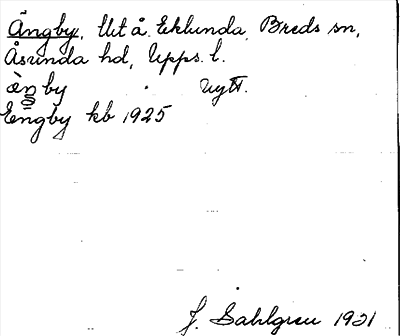 Ängby, Ut å. Eklunda, Breds sn,
Åsunda hd, Upps. l.
äŋby Uytt.
Engby kb 1925
J. Sahlgren 1921